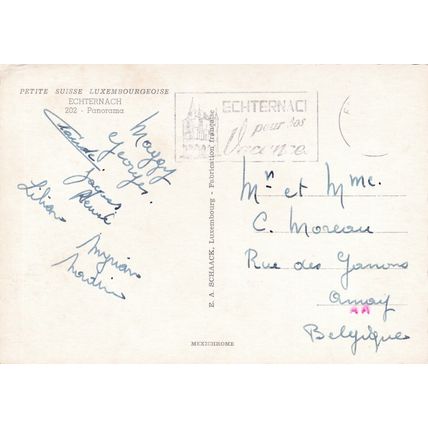 PETITE SUISSE LUXEMBOURGEOISE
ECHTERNACH
202 - Panorama
ECHTERNACH
pour vos
Vacances
Maggy
Georges
Claude
Jacques
Lilian
Myriam
E. A. SCHAACK, Luxembourg - Fabrication française
Mr et Mme.
C. Moreau
Rue des
Amay
Belgique
MEXICHROME